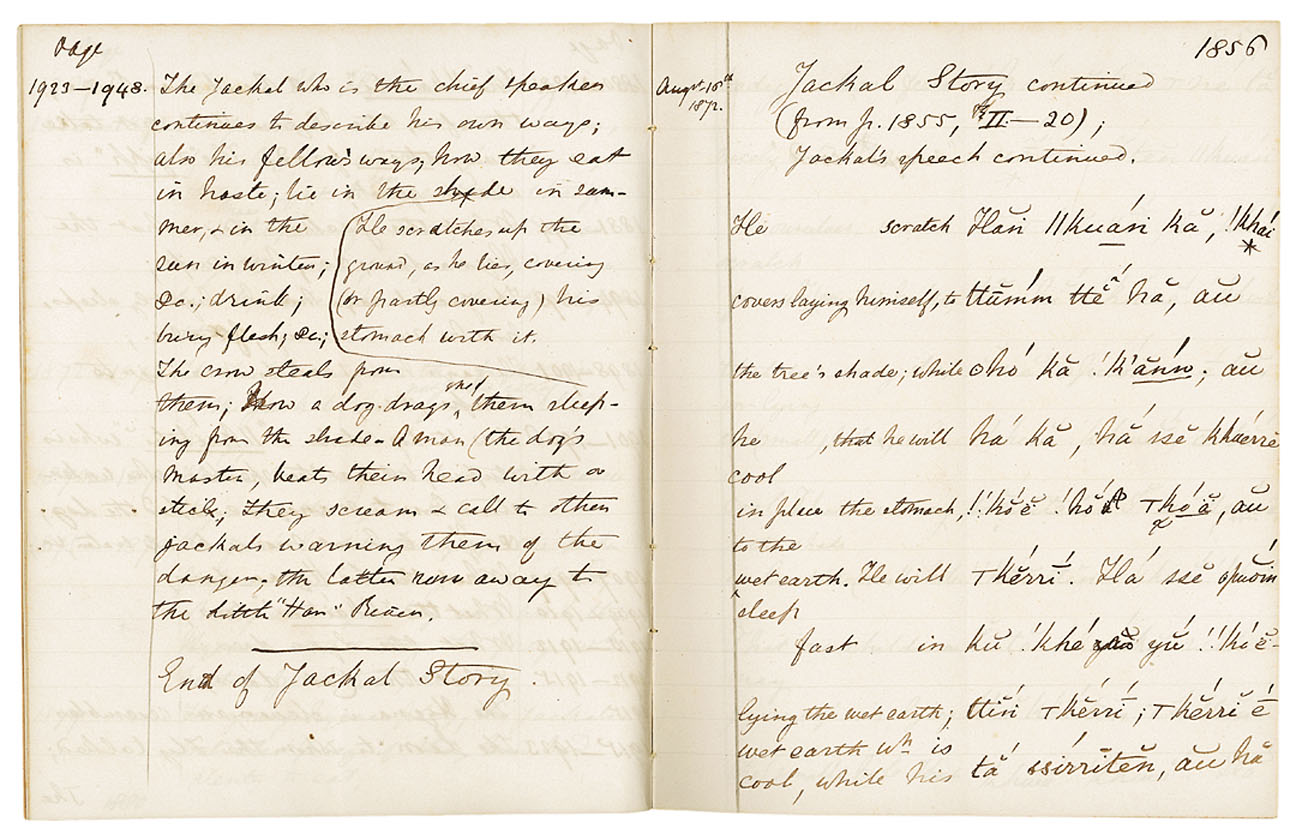 Page
1923—1948. The Jackal who is the chief speaker
continues to describe his own ways;
also his fellow's ways, how they eat
in haste; lie in the shade in sum-
mer, & in the (He scratches up the
sun in winter; ground, as he lies, covering
&c.; drink; (or partly covering) his
bury flesh, &c.; stomach with it.
The crow steals from
them; how a dog drags one of them sleep-
ing from the shade. A man (the dog's
master, beats their head with a
stick; they scream & call to other
jackals warning them of the
danger. the latter run away to
the little "Har" River.
End of Jackal Story.
1856
Augst 18th
1872.
Jackal Story continued
(from p. 1855, II.—20);
Jackal's speech continued.
He scratch Hăń ||kuáń kă, !kháí
*
covers laying himself, to ttúmm ttĕ hă, aŭ
the tree's shade; while ʘhó kă !k'ăńń; aŭ
he , that he will há kă, hă ssĕ kháérrĕ
cool
in place the stomach, !kŏĕ !hŏ ⊤kóă, aŭ
to the
wet earth. He will ⊤kĕrrí. Há ssĕ ʘpuŏiń
sleep
fast in kŭ !khé yŭ !kóĕ-
lying the wet earth; ttiń ⊤kĕrrí; ⊤kĕrrĭ é
wet earth wh is
cool, while his tá ssírrĭtĕn, aŭ hă